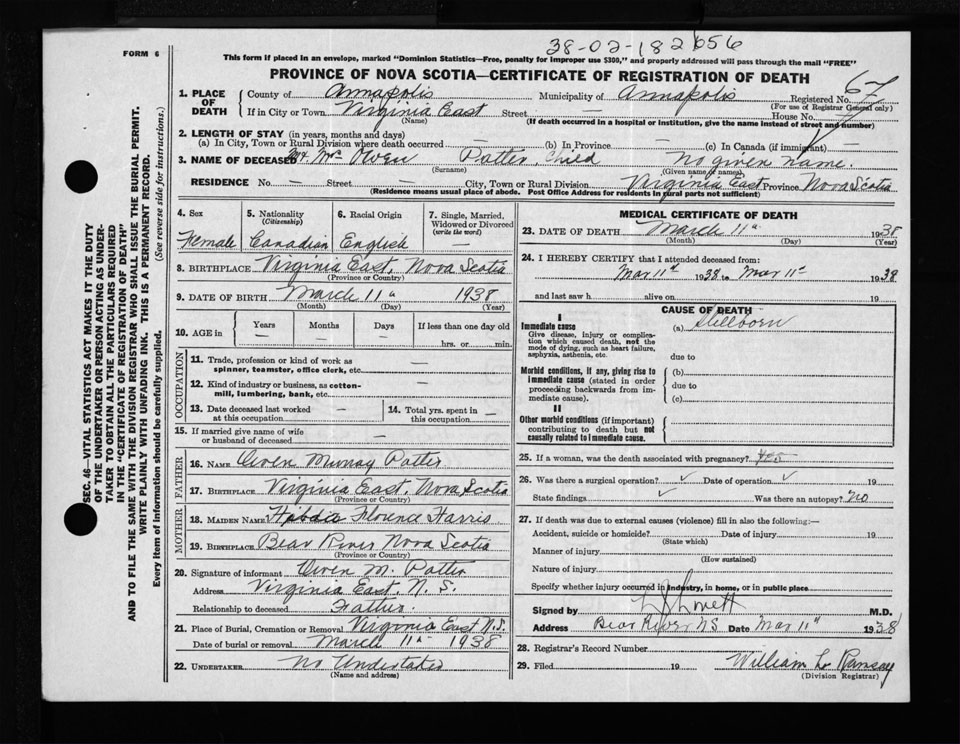 38-02-182656
FORM 6
This form if placed in an envelope, marked "Dominion Statistics—Free, penalty for improper use $300," and properly addressed will pass through the mail "FREE"
PROVINCE OF NOVA SCOTIA—CERTIFICATE OF REGISTRATION OF DEATH
1. PLACE OF DEATH County of Annapolis Municipality of Annapolis Registered No. 67
(For use of Registrar General only)
If in City or Town Virginia East Street House No.
(Name) (If death occurred in a hospital or institution, give the name instead of street and number)
2. LENGTH OF STAY (in years, months and days)
(a) In City, Town or Rural Division where death occurred — (b) In Province — (c) In Canada (if immigrant) —
3. NAME OF DECEASED Mr. Mrs Owen Potter, Child No given name.
(Surname) (Given name or names)
RESIDENCE No. — Street — City, Town or Rural Division Virginia East Province Nova Scotia
(Residence means usual place of abode. Post Office Address for residents in rural parts not sufficient)
4. Sex Female
5. Nationality (Citizenship) Canadian
6. Racial Origin English
7. Single, Married, Widowed or Divorced (write the word) —
8. BIRTHPLACE Virginia East, Nova Scotia
(Province or Country)
9. DATE OF BIRTH March 11th 1938
(Month) (Day) (Year)
10. AGE in Years — Months — Days — If less than one day old
hrs. or min.
OCCUPATION
11. Trade, profession or kind of work as —
spinner, teamster, office clerk, etc.
12. Kind of industry or business, as cotton- —
mill, lumbering, bank, etc.
13. Date deceased last worked at this occupation —
14. Total yrs. spent in this occupation —
15. If married give name of wife or husband of deceased —
FATHER
16. NAME Owen Murray Potter
17. BIRTHPLACE Virginia East, Nova Scotia
(Province or Country)
MOTHER
18. MAIDEN NAME Florence Harris
19. BIRTHPLACE Bear River Nova Scotia
(Province or Country)
20. Signature of informant Owen M. Potter
Address Virginia East, N. S.
Relationship to deceased Father.
21. Place of Burial, Cremation or Removal Virginia East N.S.
Date of burial or removal March 11th 1938
22. UNDERTAKER No Undertaker
(Name and address)
MEDICAL CERTIFICATE OF DEATH
23. DATE OF DEATH March 11th 1938
(Month) (Day) (Year)
24. I HEREBY CERTIFY that I attended deceased from:
Mar 11th 1938 to Mar 11th 1938
and last saw h alive on 19
CAUSE OF DEATH
I
Immediate cause (a) Stillborn
Give disease, injury or complication which caused death, not the mode of dying, such as heart failure, asphyxia, asthenia, etc.
due to
Morbid conditions, if any, giving rise to immediate cause (stated in order proceeding backwards from immediate cause).
(b)
due to
(c)
II
Other morbid conditions (if important) contributing to death but not causally related to immediate cause.
25. If a woman, was the death associated with pregnancy? yes
26. Was there a surgical operation? ✓ Date of operation ✓ 19
State findings ✓ Was there an autopsy? no
27. If death was due to external causes (violence) fill in also the following:—
Accident, suicide or homicide? Date of injury 19
(State which)
Manner of injury
(How sustained)
Nature of injury
Specify whether injury occurred in industry, in home, or in public place
Signed by Lovett M.D.
Address Bear River NS Date Mar 11th 1938
28. Registrar's Record Number
29. Filed 19 William L. Ramsay
(Division Registrar)
SEC. 46—VITAL STATISTICS ACT MAKES IT THE DUTY
OF THE UNDERTAKER OR PERSON ACTING AS UNDER-
TAKER TO OBTAIN ALL THE PARTICULARS REQUIRED
IN THE "CERTIFICATE OF REGISTRATION OF DEATH"
AND TO FILE THE SAME WITH THE DIVISION REGISTRAR WHO SHALL ISSUE THE BURIAL PERMIT.
WRITE PLAINLY WITH UNFADING INK. THIS IS A PERMANENT RECORD.
Every item of information should be carefully supplied. (See reverse side for instructions.)